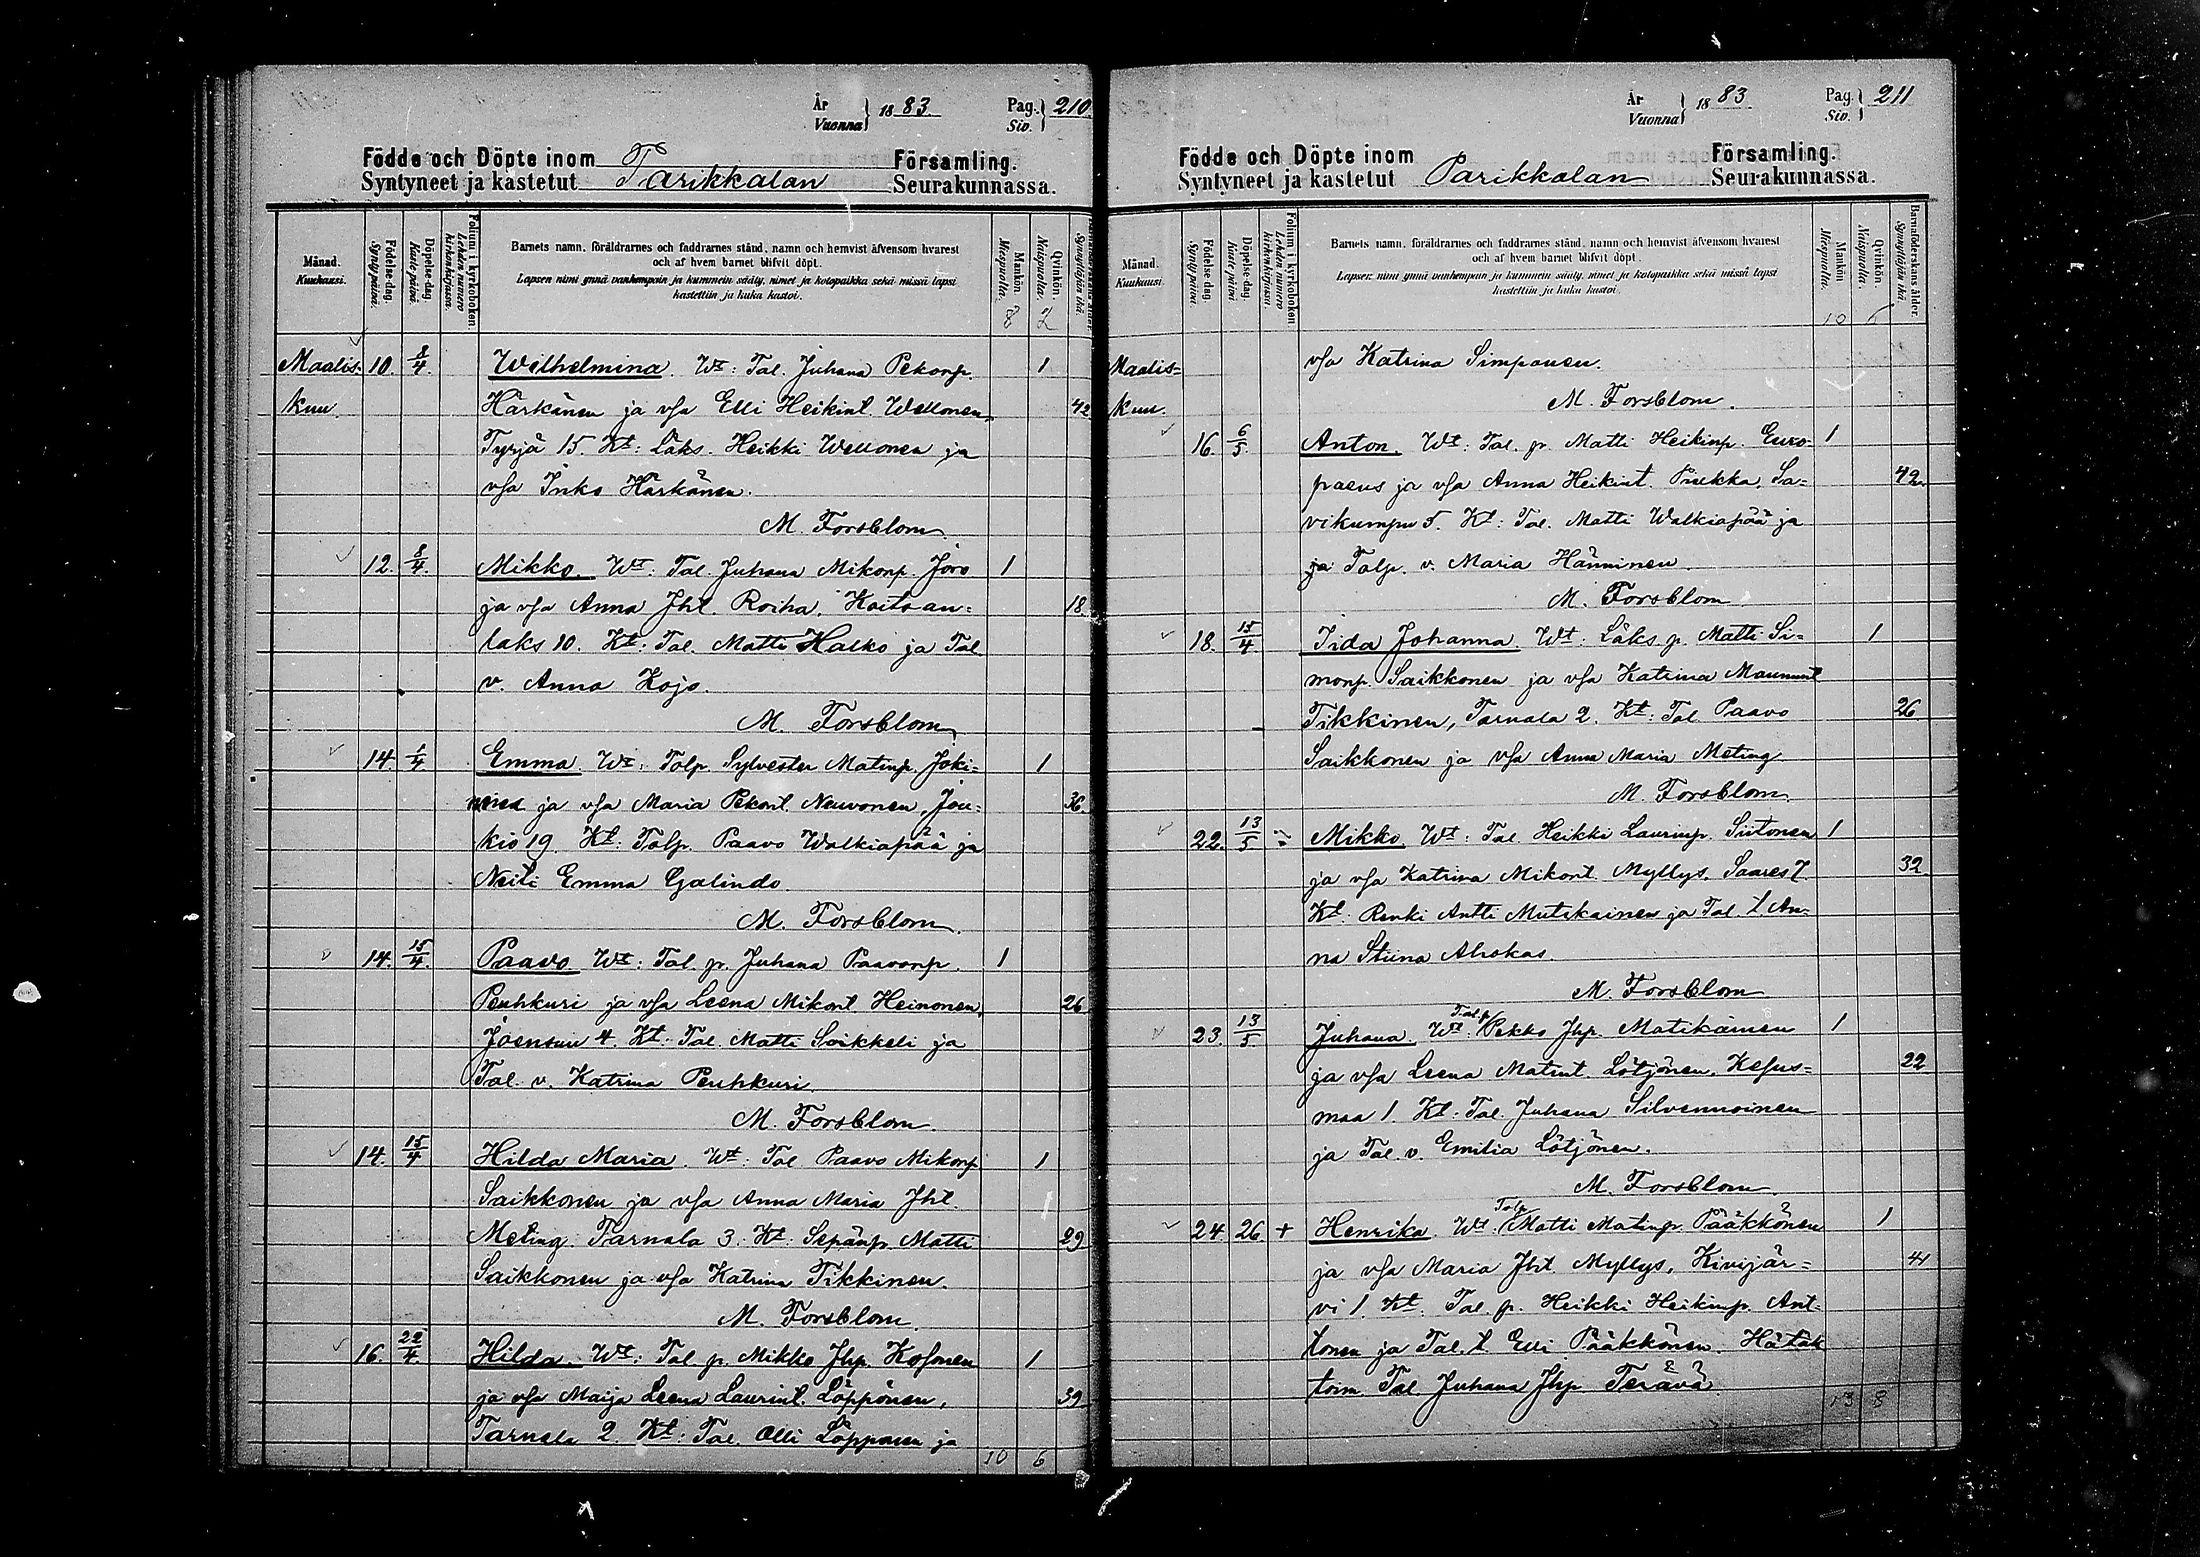 År
Vuonna } 1883.
Pag.
Siv. } 210.
Födde och Döpte inom Parikkalan Församling.
Syntyneet ja kastetut Seurakunnassa.
Månad.
Kuukausi.
Födelse-dag.
Syntypäivä.
Döpelse-dag.
Kastepäivä.
Folium i kyrkoboken
Lehden numero kirkonkirjassa.
Barnets namn, föräldrarnes och faddrarnes stånd, namn och hemvist äfvensom hvarest
och af hvem barnet blifvit döpt.
Lapsen nimi ynnä vanhempain ja kummein sääty, nimet ja kotopaikka sekä missä lapsi
kastettiin ja kuka kastoi.
Mankön
Miespuolta.
Qvinkön.
Naispuolta.
Synnyttäjän ikä.
8 2
Maalis- 10. 8/4. Wilhelmina. Wt: Tal. Juhana Pekonp. 1
kuu. Härkänen ja vsa Elli Heikint. Wellonen, 42
Tyrjä 15. Kt: Läks. Heikki Wellonen ja
vsa Inko Härkänen.
M. Forsblom
12. 8/4. Mikko. Wt: Tal. Juhana Mikonp. Joro 1
ja vsa Anna Jht. Roiha, Koitsan- 18.
laks 10. Kt: Tal. Matti Halko ja Tal.
v. Anna Kojo.
M. Forsblom
14. 1/4. Emma Wt: Talp. Sylvester Matinp. Joki- 1
nen ja vsa Maria Pekont. Neuvonen, Jou- 36.
kio 19. Kt: Talp. Paavo Walkiapää ja
Neiti Emma Galindo.
M. Forsblom.
14. 15/4. Paavo Wt: Tal. p. Juhana Paavonp. 1
Peuhkuri ja vsa Leena Mikont. Heinonen, 26
Joensuu 4. Kt: Tal. Matti Soikkeli ja
Tal. v. Katrina Peuhkuri.
M. Forsblom.
14. 15/4 Hilda Maria. Wt: Tal Paavo Mikonp 1
Saikkonen ja vsa Anna Maria Jht.
Meting. Tarnala 3. Kt: Sepänp. Matti 29
Saikkonen ja vsa Katrina Tikkinen.
M. Forsblom.
16. 22/4 Hilda. Wt: Tal p. Mikko Jhp. Kosonen 1
ja vsa Maija Leena Laurint. Löppönen, 39
Tarnala 2. Kt: Tal. Olli Löpponen ja
10 6
År
Vuonna } 1883.
Pag.
Siv. } 211
Födde och Döpte inom Parikkalan Församling.
Syntyneet ja kastetut Seurakunnassa.
Månad.
Kuukausi.
Födelse-dag.
Syntypäivä.
Döpelse-dag.
Kastepäivä.
Folium i kyrkoboken
Lehden numero kirkonkirjassa.
Barnets namn, föräldrarnes och faddrarnes stånd, namn och hemvist äfvensom hvarest
och af hvem barnet blifvit döpt.
Lapsen nimi ynnä vanhempain ja kummein sääty, nimet ja kotopaikka sekä missä lapsi
kastettiin ja kuka kastoi.
Mankön
Miespuolta.
Qvinkön.
Naispuolta.
Barnaföderskans ålder.
Synnyttäjän ikä.
10 6
Maalis- vsa Katrina Simpanen.
kuu. M. Forsblom.
16. 6/5. Anton. Wt: Tal. p. Matti Heikinp. Euro- 1
paeus ja vsa Anna Heikint. Piukka, Sa- 42.
vikumpu 5. Kt: Tal. Matti Walkiapää ja
ja Talp. v. Maria Hänninen.
M. Forsblom
18. 15/4 Iida Johanna. Wt: Läks. p. Matti Si- 1
monp. Saikkonen ja vsa Katrina Maununt
Tikkinen, Tarnala 2. Kt: Tal. Paavo 26
Saikkonen ja vsa Anna Maria Meting
M. Forsblom.
22. 13/5 Mikko. Wt: Tal. Heikki Laurinp. Siitonen 1
ja vsa Katrina Mikont. Myllys, Saares 7. 32
Kt: Renki Antti Mutikainen ja Tal. t An-
na Stiina Ahokas.
M. Forsblom
23. 13/5 Juhana. Wt: Tal.p. Pekko Jhp. Matikainen 1
ja vsa Leena Matint. Lötjönen, Kesus- 22
maa 1. Kt: Tal. Juhana Silvennoinen
ja Tal. v. Emilia Lötjönen.
M. Forsblom.
24 26 + Henrika. Wt: Talp Matti Matinp. Pääkkönen 1
ja vsa Maria Jht. Myllys, Kivijär- 41
vi 1. Kt: Tal. p. Heikki Heikinp. Ant-
tonen ja Tal. t Elli Pääkkönen. Hätäk
toim Tal. Juhana Jhp Terävä
13 8